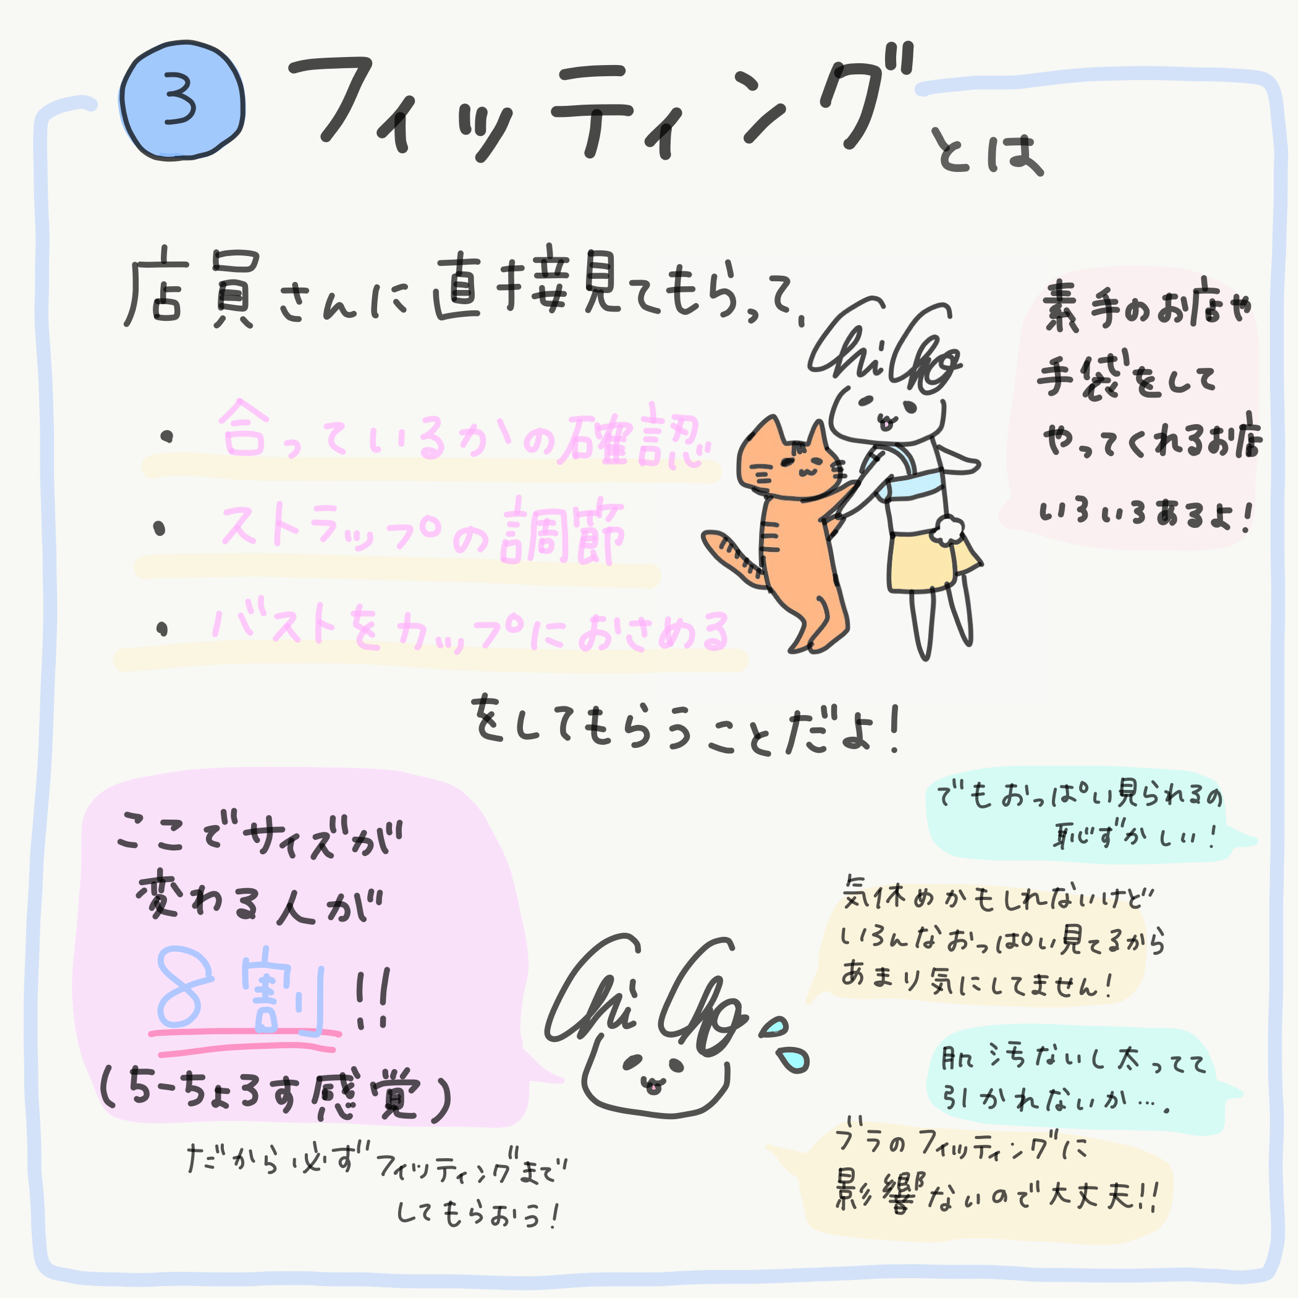 3 フィッティングとは
店員さんに直接見てもらって、
・合っているかの確認
・ストラップの調節
・バストをカップにおさめる
をしてもらうことだよ!
素手のお店や
手袋をして
やってくれるお店
いろいろあるよ!
Chi Cho
ここでサイズが
変わる人が
8割!!
(ちーちょろす感覚)
だから必ずフィッティングまで
してもらおう!
Chi Cho
でもおっぱい見られるの
恥ずかしい!
気休めかもしれないけど
いろんなおっぱい見てるから
あまり気にしてません!
肌汚ないし太ってて
引かれないか….
ブラのフィッティングに
影響ないので大丈夫!!